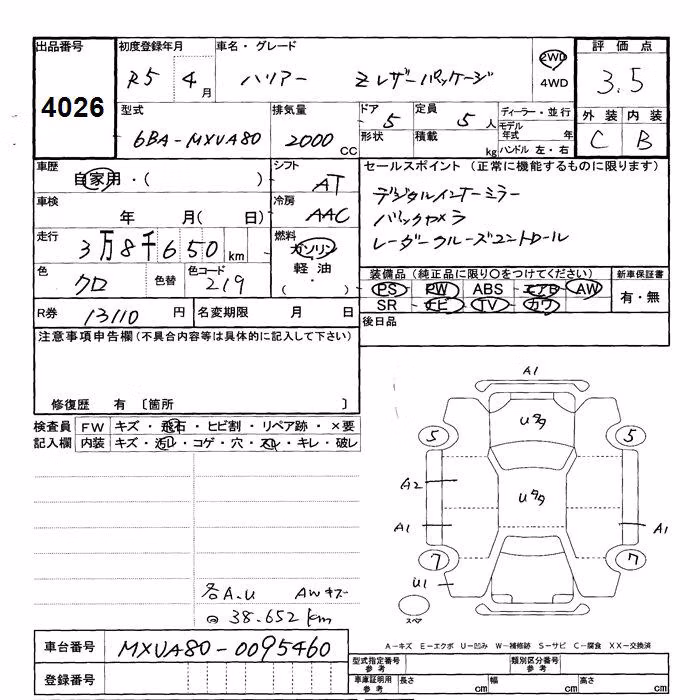 出品番号 初度登録年月 車名・グレード 2WD 評価点
4026 R5 4月 ハリアー Zレザーパッケージ 4WD 3.5
型式 排気量 ドア 定員 ディーラー・並行 外装 内装
6BA-MXUA80 2000CC 5 5人 モデル年式 年 C B
形状 積載 kg ハンドル 左・右
車歴 自家用・( ) シフト AT セールスポイント (正常に機能するものに限ります)
車検 年 月( 日) 冷房 AAC デジタルインナーミラー
バックカメラ
走行 3万8千650km 燃料 ガソリン レーダークルーズコントロール
軽油
・
( )
色 クロ 色替 色コード 219 装備品 (純正品に限り○をつけてください) 新車保証書
PS PW ABS エアB AW 有・無
R券 13110円 名変期限 月 日 SR ナビ TV カワ
注意事項申告欄 (不具合内容等は具体的に記入して下さい) 後日品
修復歴 有 〔箇所 〕
検査員 FW キズ・飛石・ヒビ割・リペア跡・×要
記入欄 内装 キズ・汚れ・コゲ・穴・スレ・キレ・破レ
A1
Uタタ
5 5
A2 Uタタ
A1 A1
7 7
U1
スペア
各A.U AWキズ
@ 38.652km
A-キズ E-エクボ U-凹み W-補修跡 S-サビ C-腐食 XX-交換済
車台番号 MXUA80-0095460 型式指定番号 参考 類別区分番号 参考
登録番号 車庫証明用 参考 長さ cm 幅 cm 高さ cm